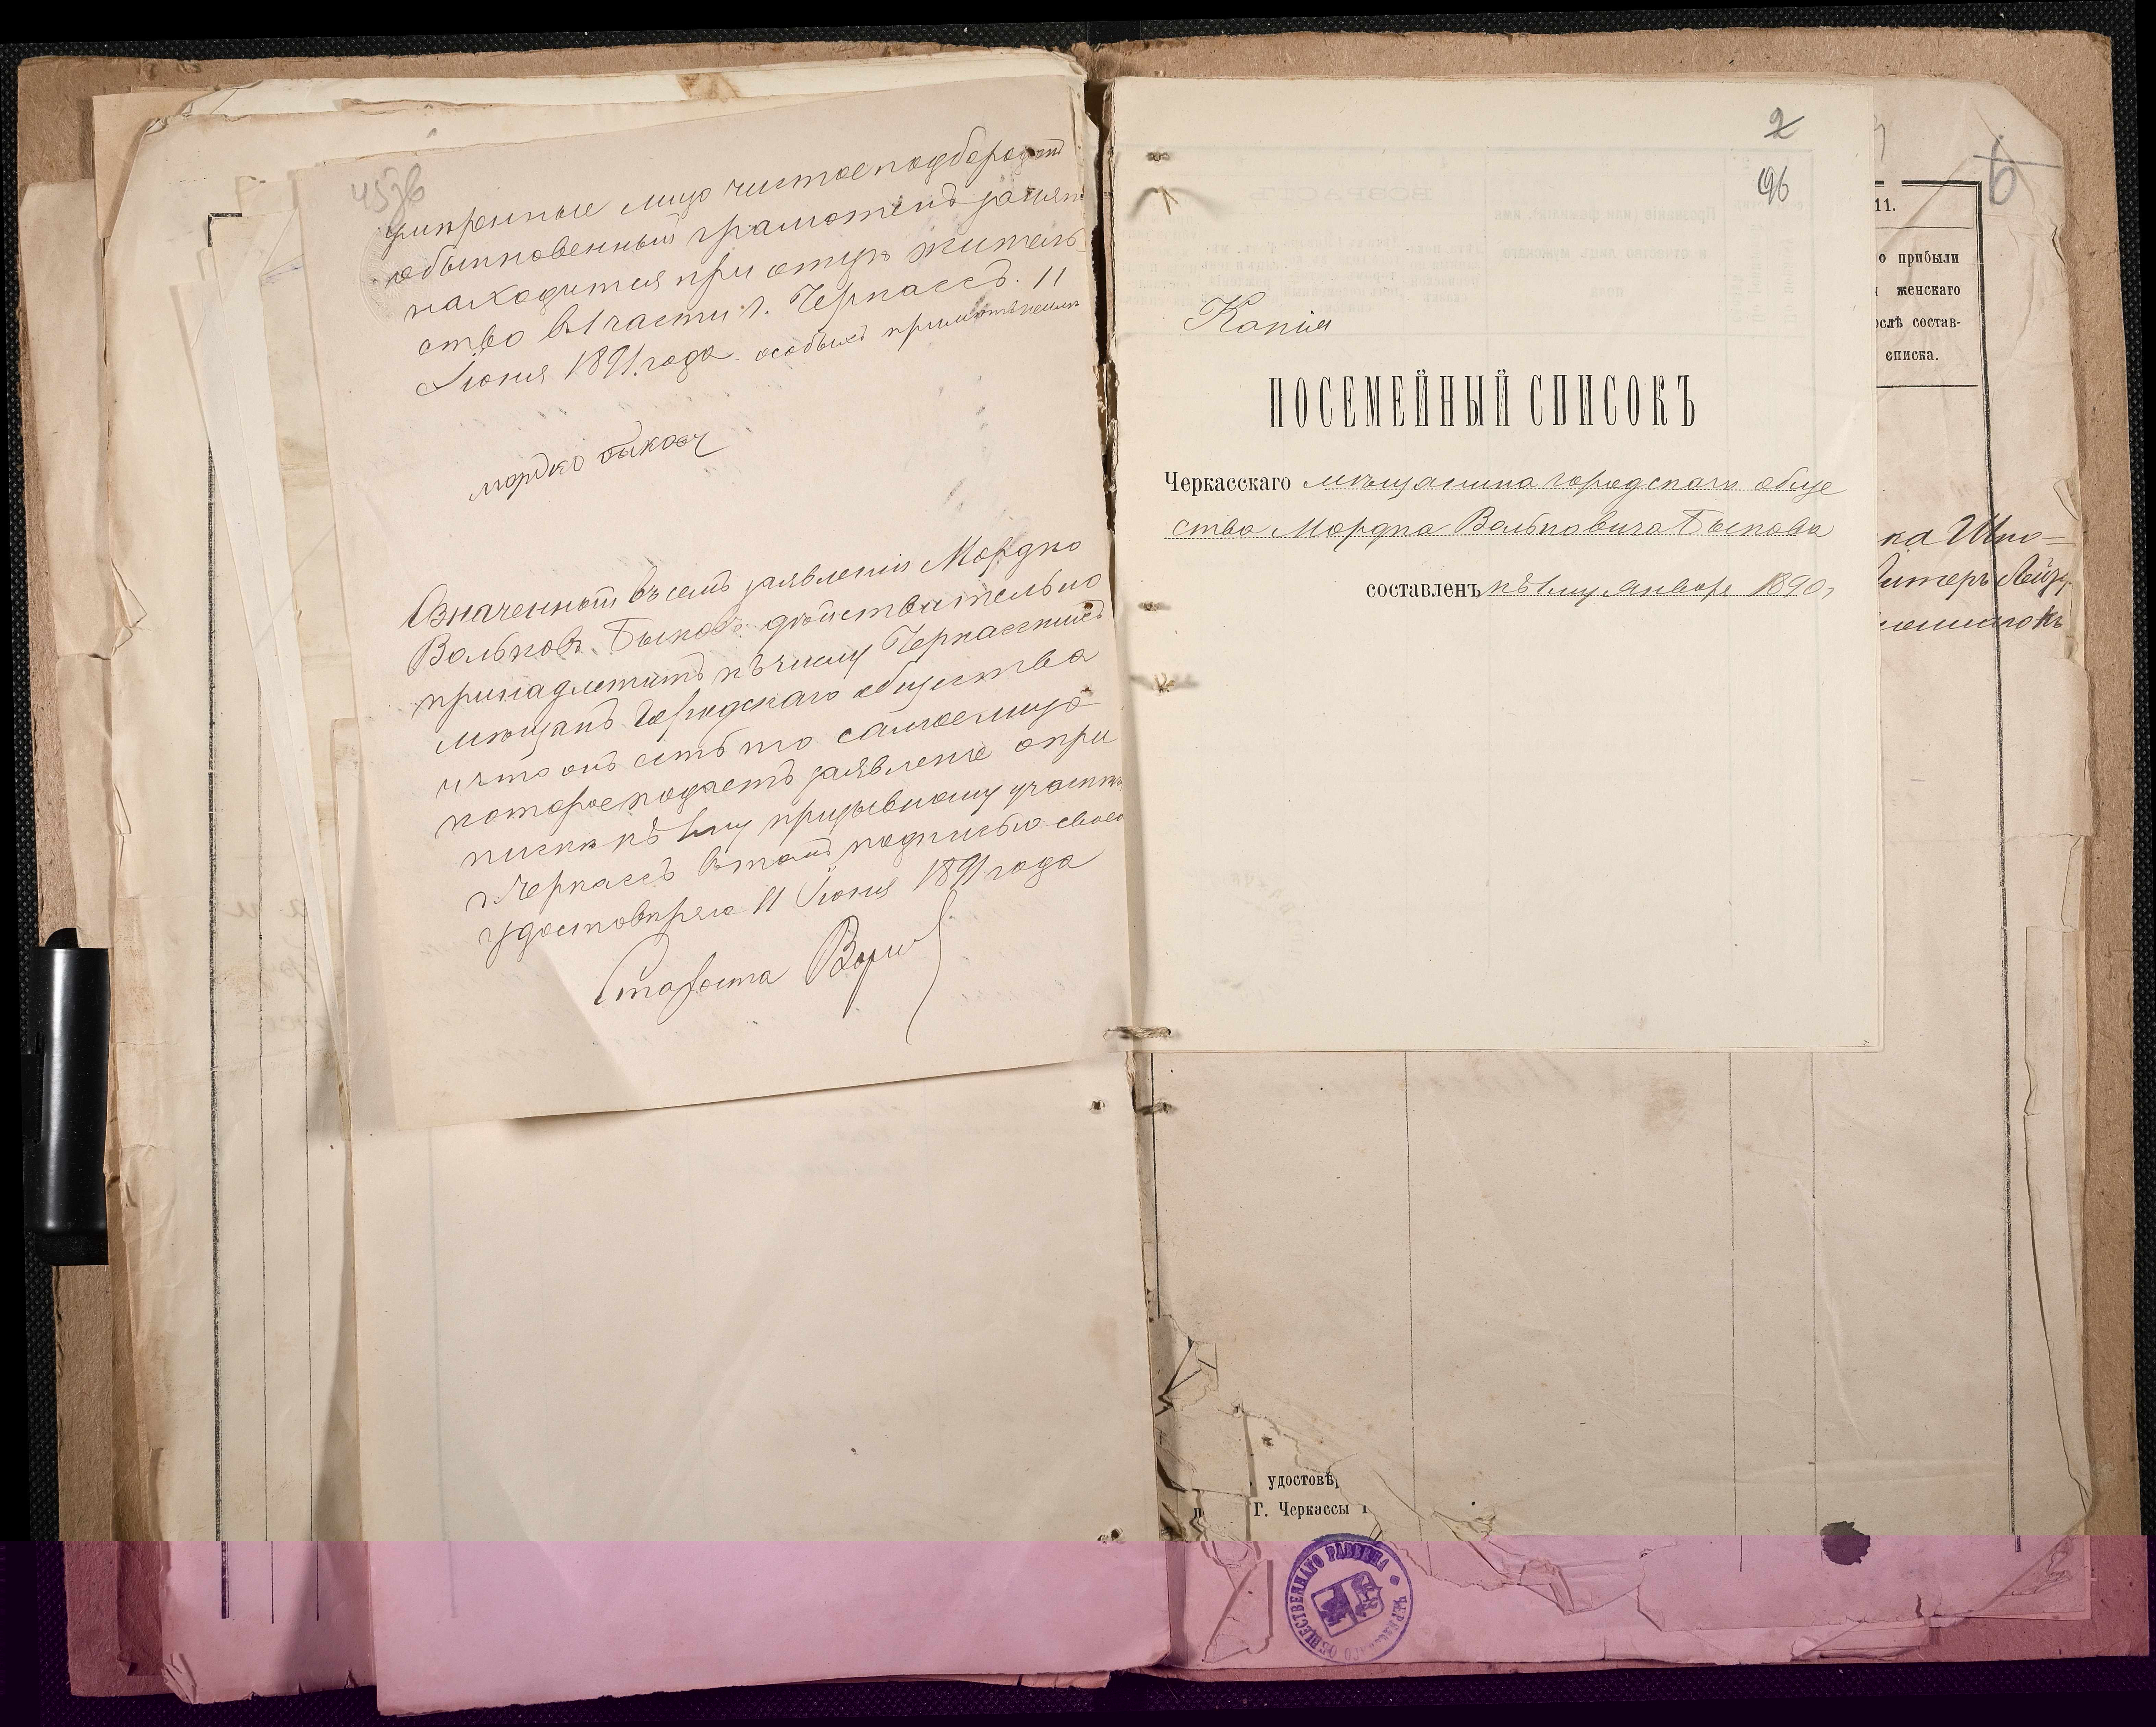 457б
умѣренные лицо чистое подбородокъ
обыкновенный грамотенъ занят
находится при отцѣ житель
ство в 1 части г. Черкассъ. 11
Іюня 1891 года особыхъ примѣт
мордко быковъ
Означенный въ семъ заявленіи Мордко
Вольковъ Быковъ дѣйствительно
принадлежитъ къ числу Черкасскихъ
мѣщанъ Городскаго общества
и что онъ есть то самое лицо
которое подаетъ заявленіе о при
писки къ 1му призывному участку
г. Черкассъ в томъ подписью своею
удостовѣряю 11 Іюня 1891 года
Староста
2
96
Копія
ПОСЕМЕЙНЫЙ СПИСОКЪ
Черкасскаго мѣщанина городскаго обще
ства Мордка Вольковича Быкова
составленъ къ 1му январѣ 1890,
6
11.
о прибыли
женскаго
ослѣ состав-
списка.
ка Шпо=
удостовѣр
Г. Черкассы
ЧЕРКАССКАГО ОБЩЕСТВЕННАГО РАВВИНА